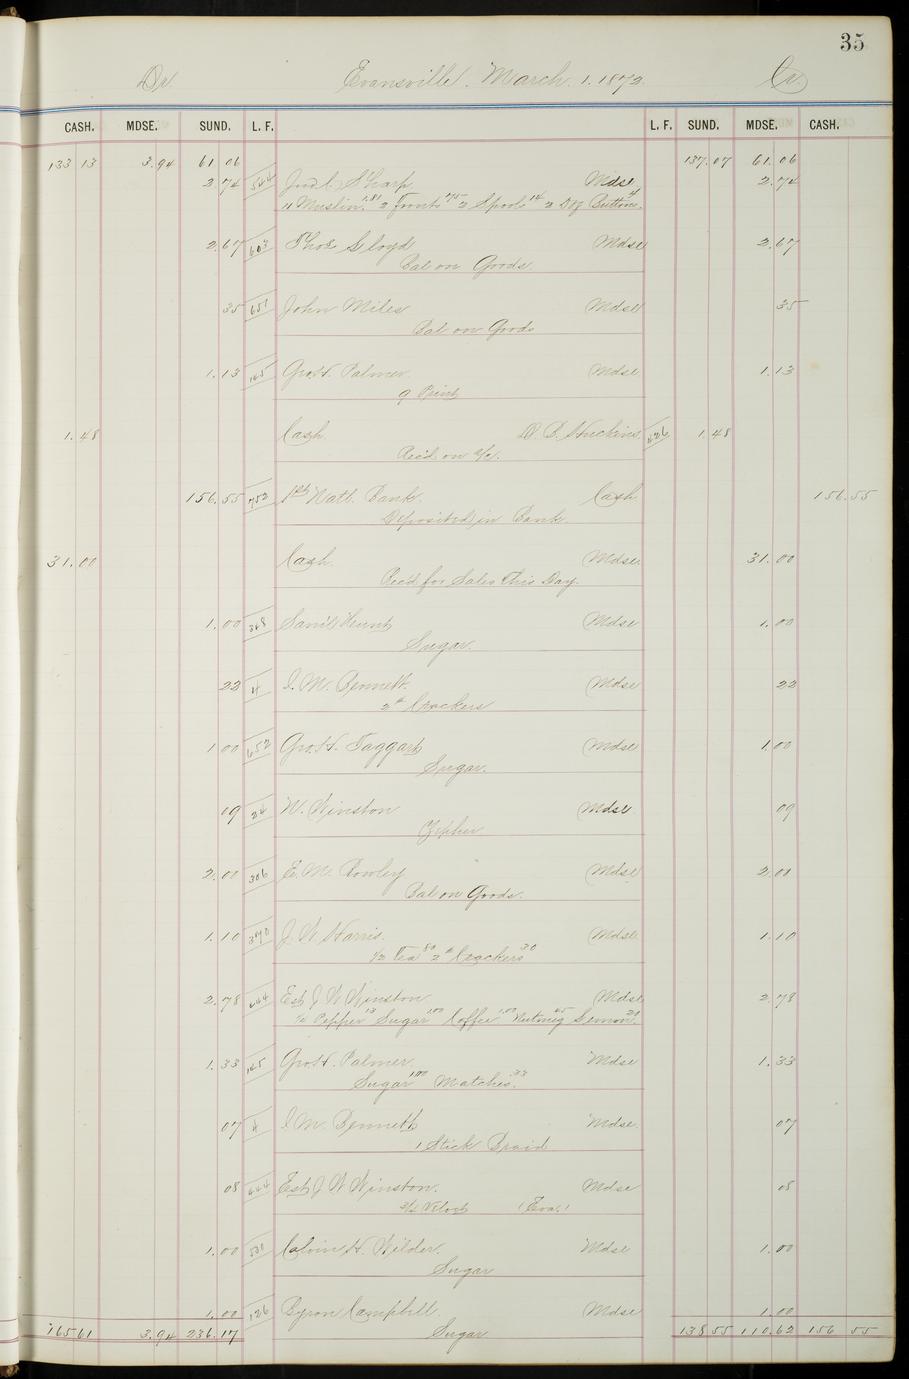 35
Dr Evansville, March. 1. 1872. Cr
CASH. MDSE. SUND. L. F. L. F. SUND. MDSE. CASH.
133 13 3.94 61 06 137.07 61.06
2 74 544 Sharp Mdse 2.74
11 Muslin 1.81 2 Fronts 75 2 Spools 14 2 Dz Buttons 4
2.67 603 Thos Lloyd Mdse 2.67
Bal on Goods.
35 651 John Miles Mdse 35
Bal on Goods
1.13 165 Geo. H. Palmer Mdse 1.13
9 Print
1.48 Cash D. P. Huckins 426 1.48
Rec'd. on a/c.
156.55 752 1st Natl. Bank. Cash 156.55
Deposited in Bank.
31.00 Cash. Mdse. 31.00
Rec'd for Sales This Day.
1.00 348 Sam'l Hunt Mdse 1.00
Sugar.
22 4 I. M. Bennett. Mdse 22
2 # Crackers
1 00 652 Geo. H. Taggart Mdse 1.00
Sugar.
09 24 W. Winston Mdse 09
Zepher
2.00 306 E. M. Rowley Mdse 2.00
Bal on Goods.
1.10 370 J. W. Harris. Mdse 1.10
1/2 Tea 80 2 # Crackers 30
2.78 444 Est J W Winston Mdse 2.78
1/4 Pepper 13 Sugar 1.00 Coffee 1.00 Nutmeg 45 Lemon 20
1.33 165 Geo H. Palmer Mdse 1.33
Sugar 1.00 Matches. 33
07 4 I. M. Bennett Mdse. 07
1 Stick Braid
08 444 Est J W Winston. Mdse 08
3/4 (Eva.)
1.00 530 Calvin H. Wilder. Mdse 1.00
Sugar
1.00 126 Byron Campbell Mdse 1.00
165 61 3.94 236.17 Sugar 138 55 110.62 156 55